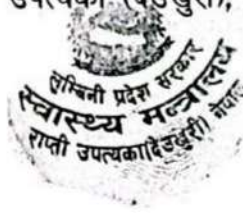 उपत्यका (देउखुरी),
लुम्बिनी प्रदेश सरकार
स्वास्थ्य मन्त्रालय
राप्ती उपत्यका(देउखुरी) नेपाल